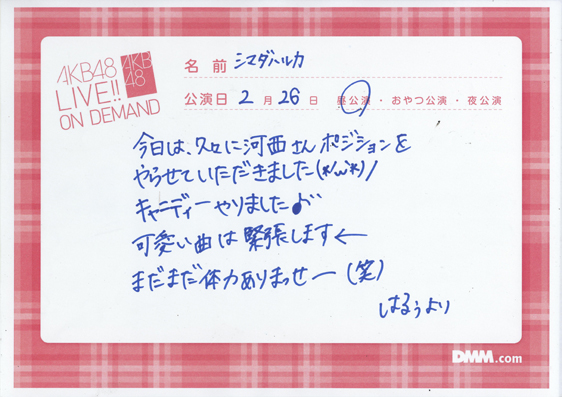 AKB48
LIVE!!
ON DEMAND
AKB
48
名前 シマダハルカ
公演日 2月26日 昼公演・おやつ公演・夜公演
今日は、久々に河西さんポジションを
やらせていただきました(*/ω\*)/
キャンディーやりました♪
可愛い曲は緊張します←
まだまだ体力ありまっせー(笑)
はるぅより
DMM.com